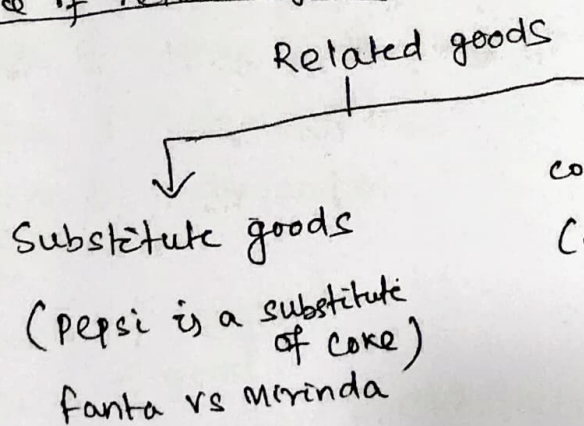 Related goods
co
Substitute goods
(
(Pepsi is a substitute
of coke)
fanta vs Mirinda